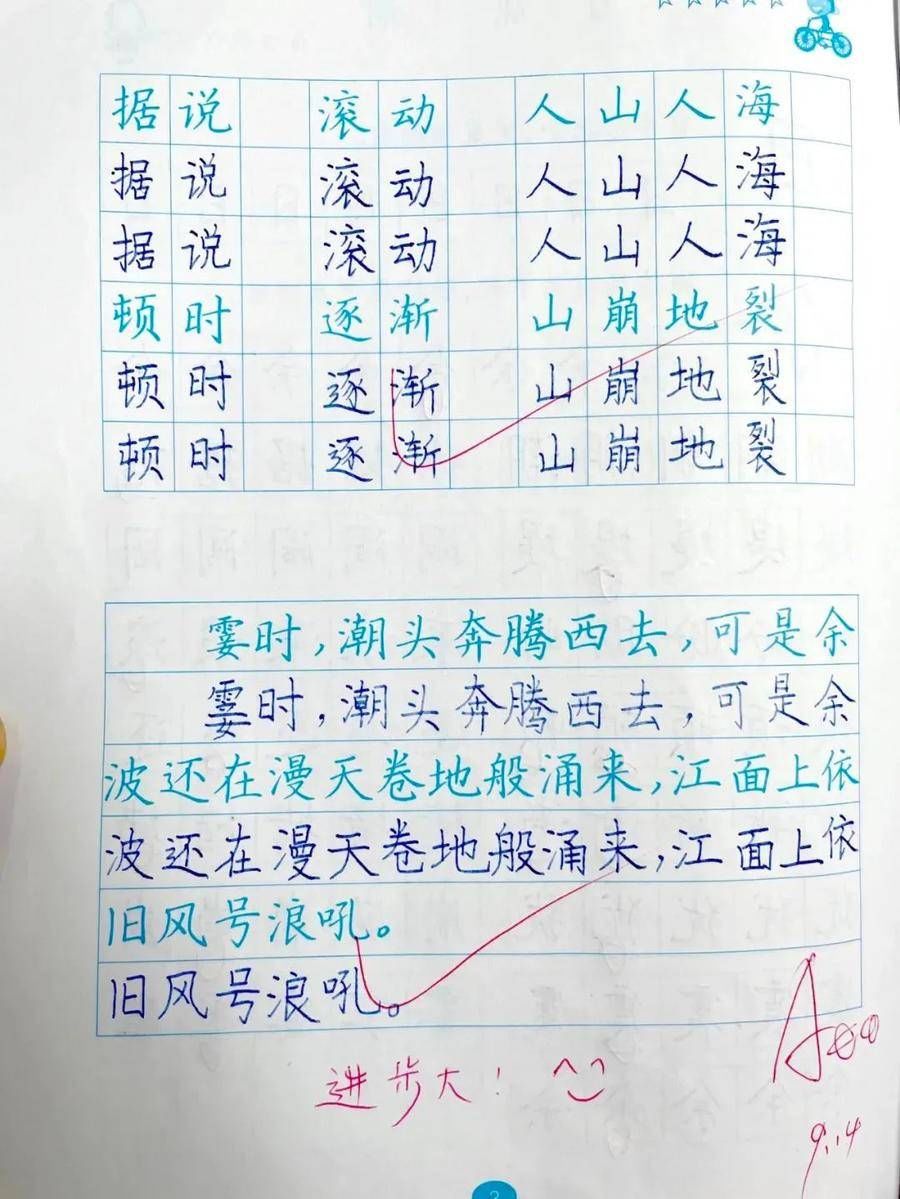 据说 滚动 人山人海
据说 滚动 人山人海
据说 滚动 人山人海
顿时 逐渐 山崩地裂
顿时 逐渐 山崩地裂
顿时 逐渐 山崩地裂
霎时,潮头奔腾西去,可是余
霎时,潮头奔腾西去,可是余
波还在漫天卷地般涌来,江面上依
波还在漫天卷地般涌来,江面上依
旧风号浪吼。
旧风号浪吼。
进步大!
9.14
3